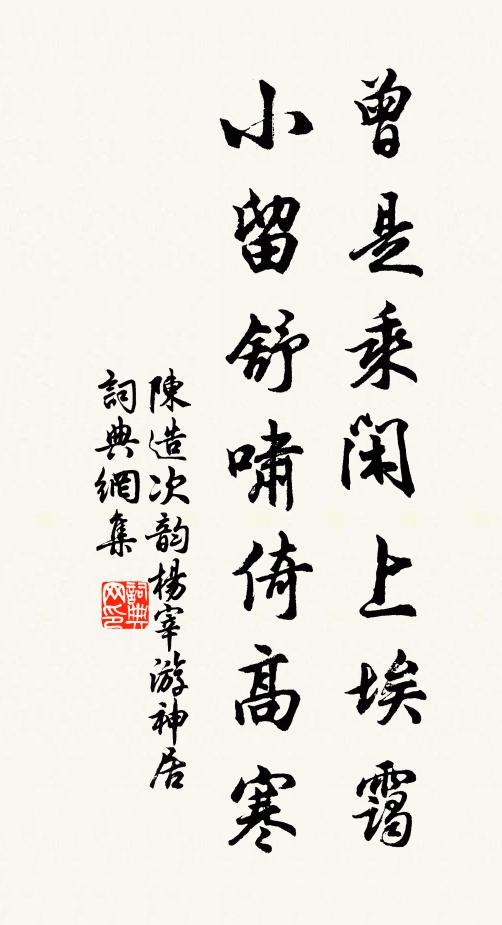 曾是乘閑上埃靄
小留舒嘯倚高寒
陳造次韵楊宰游神居
詞典網集
詞典网印